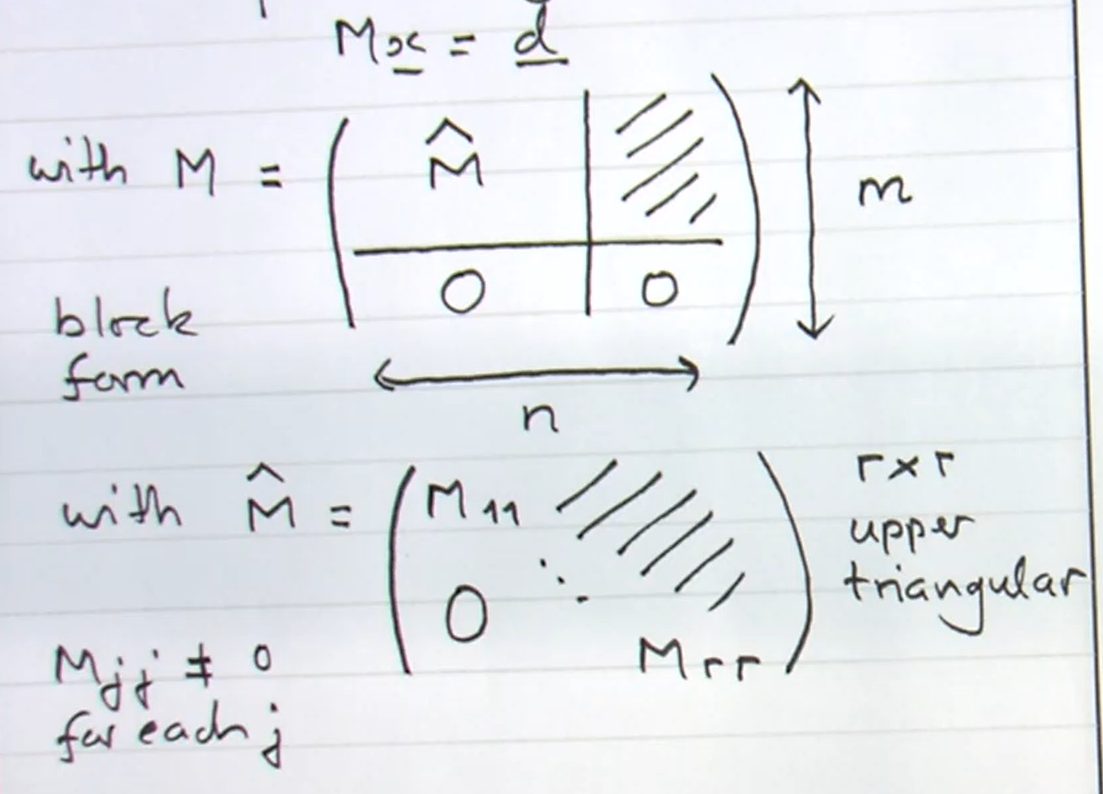 M x = d
with M = ( M̂ | //// )
0 | 0
m
block
form
n
with M̂ = ( M₁₁ ////
r × r
upper
triangular
0 ⋱
M_rr )
M_jj ≠ 0
for each j